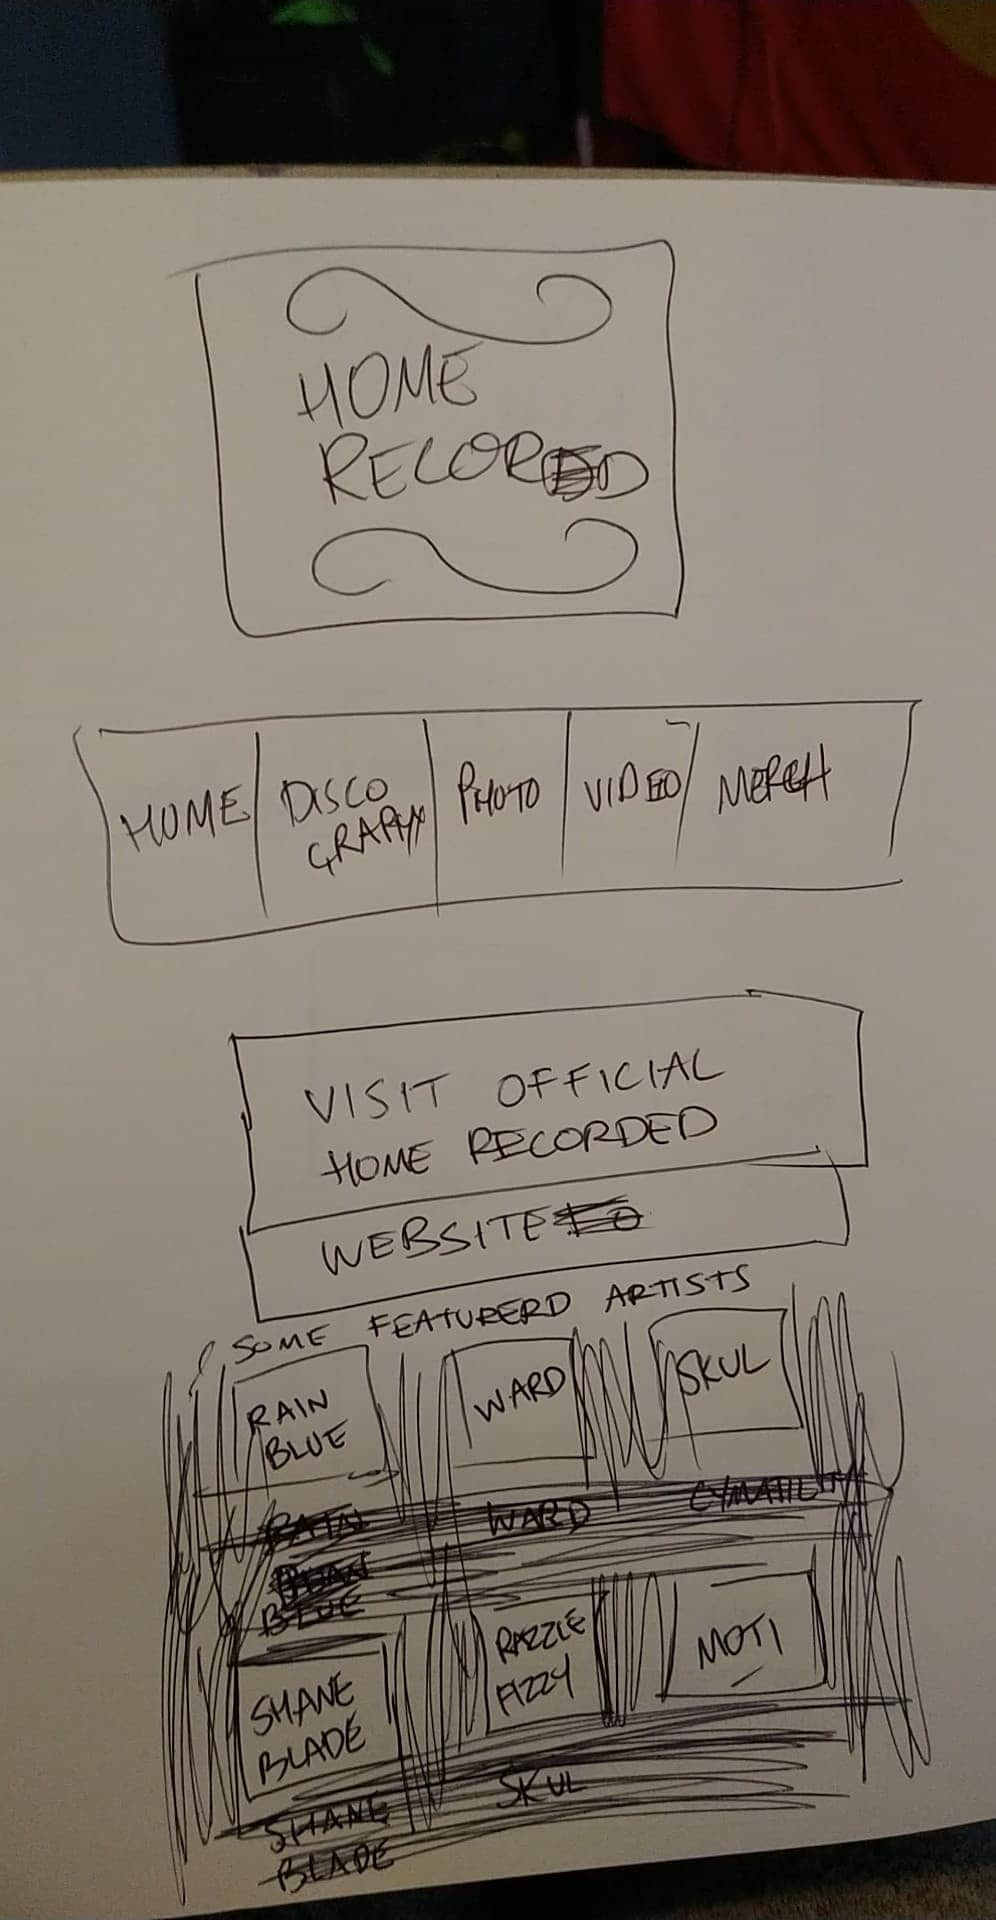 HOME
RECORDED
HOME
DISCO
GRAPHY
PHOTO
VIDEO
MERCH
VISIT OFFICIAL
HOME RECORDED
WEBSITE
SOME FEATURERD ARTISTS
RAIN
BLUE
WARD
SKUL
WARD
BLUE
SHANE
BLADE
RAZZLE
FIZZY
MOTI
SKUL
SHANE
BLADE